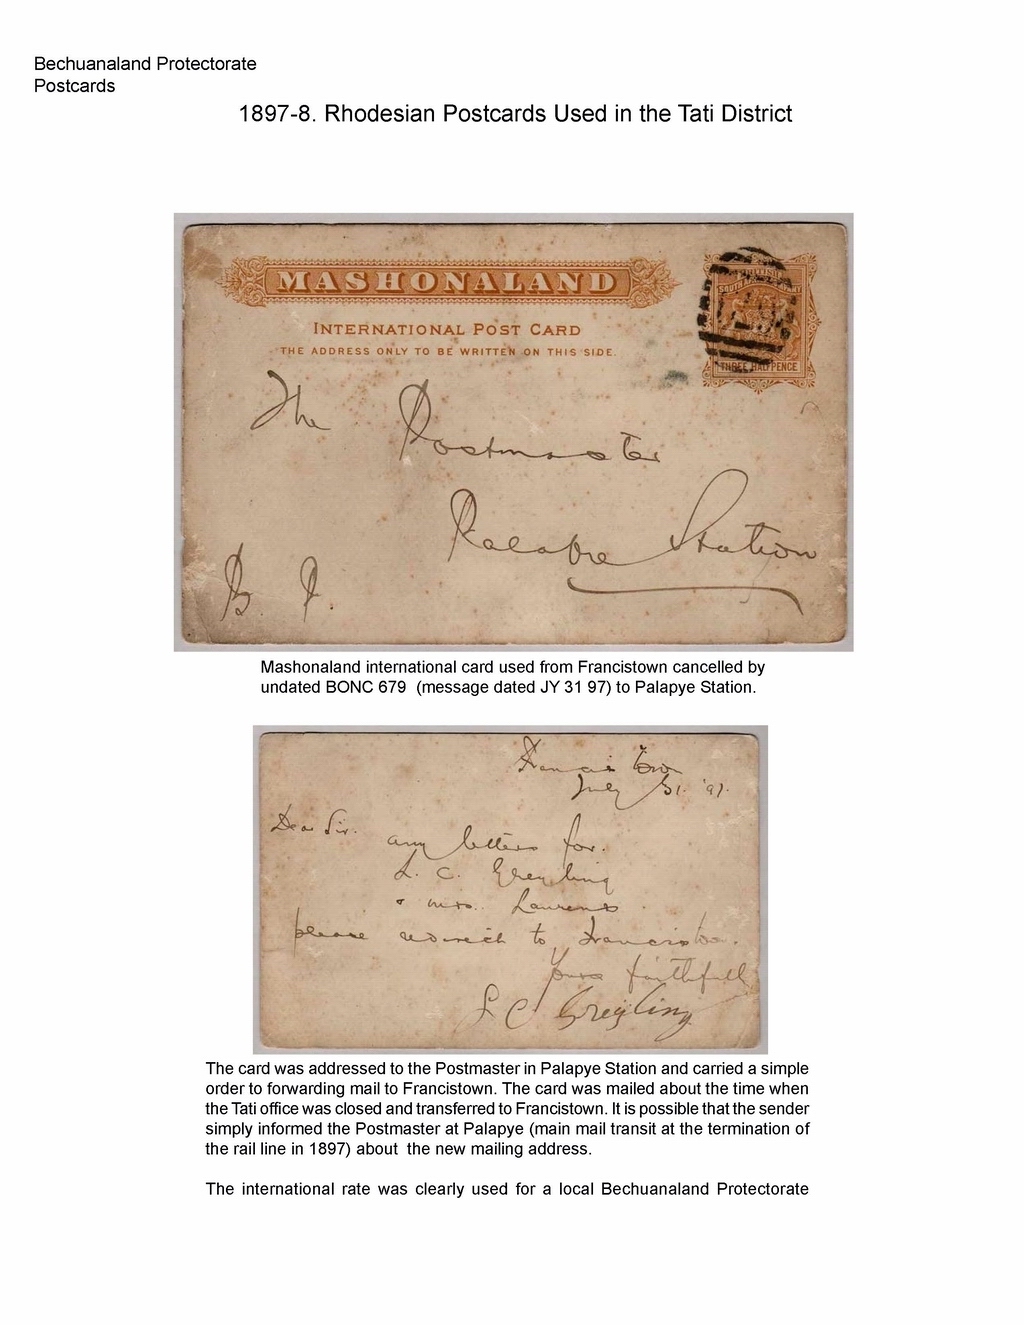 Bechuanaland Protectorate
Postcards
1897-8. Rhodesian Postcards Used in the Tati District
MASHONALAND
INTERNATIONAL POST CARD
THE ADDRESS ONLY TO BE WRITTEN ON THIS SIDE.
BRITISH
SOUTH AFRICA COMPANY
THREE HALFPENCE
The Postmaster
Palapye Station
B. P.
Mashonaland international card used from Francistown cancelled by
undated BONC 679 (message dated JY 31 97) to Palapye Station.
Francis town
July 31. '97.
Dear Sir.
any letters for.
L. C. Greyling
& mrs. Laurens
please redirect to Francistown.
Yours faithfull
L C Greyling
The card was addressed to the Postmaster in Palapye Station and carried a simple
order to forwarding mail to Francistown. The card was mailed about the time when
the Tati office was closed and transferred to Francistown. It is possible that the sender
simply informed the Postmaster at Palapye (main mail transit at the termination of
the rail line in 1897) about the new mailing address.
The international rate was clearly used for a local Bechuanaland Protectorate